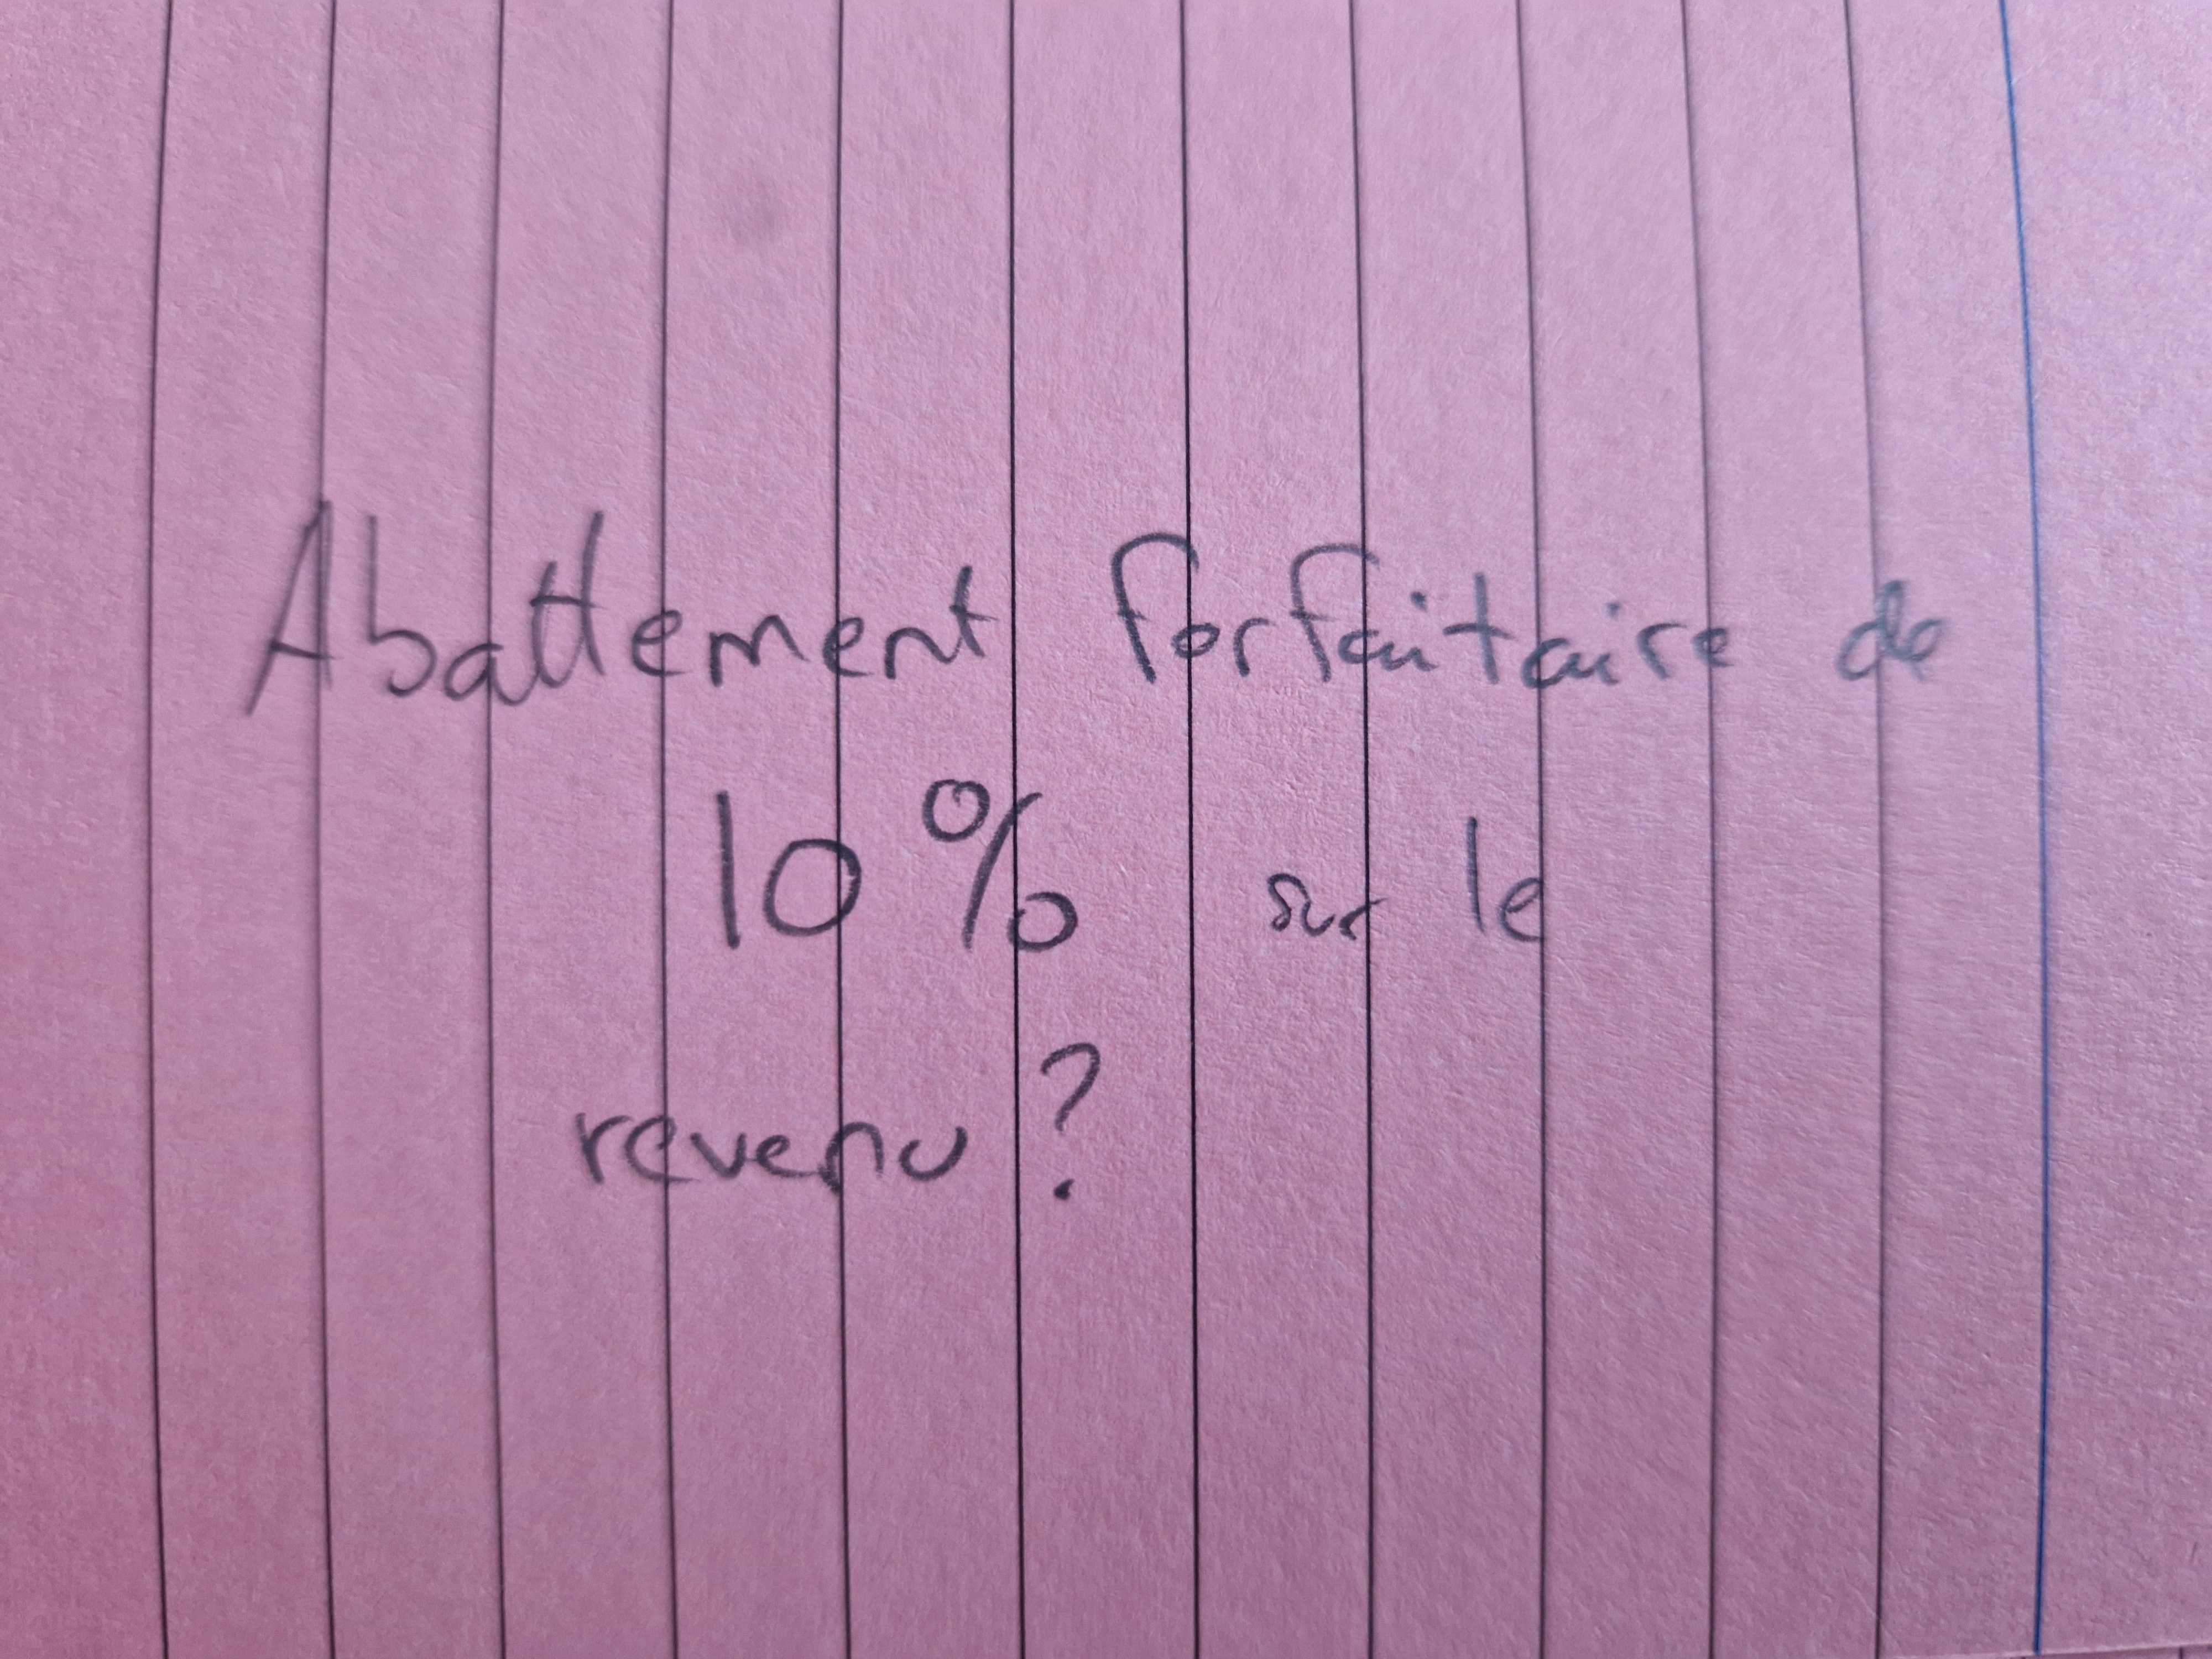 Abattement forfaitaire de
10% sur le
revenu ?